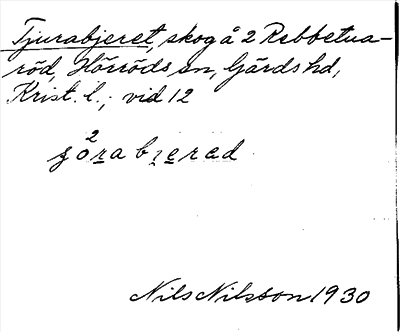 Tjurabjeret, skog å 2 Rebbetua-
röd, Hörröds sn, Gärds hd,
Krist. l.; vid 12
2
Nils Nilsson 1930